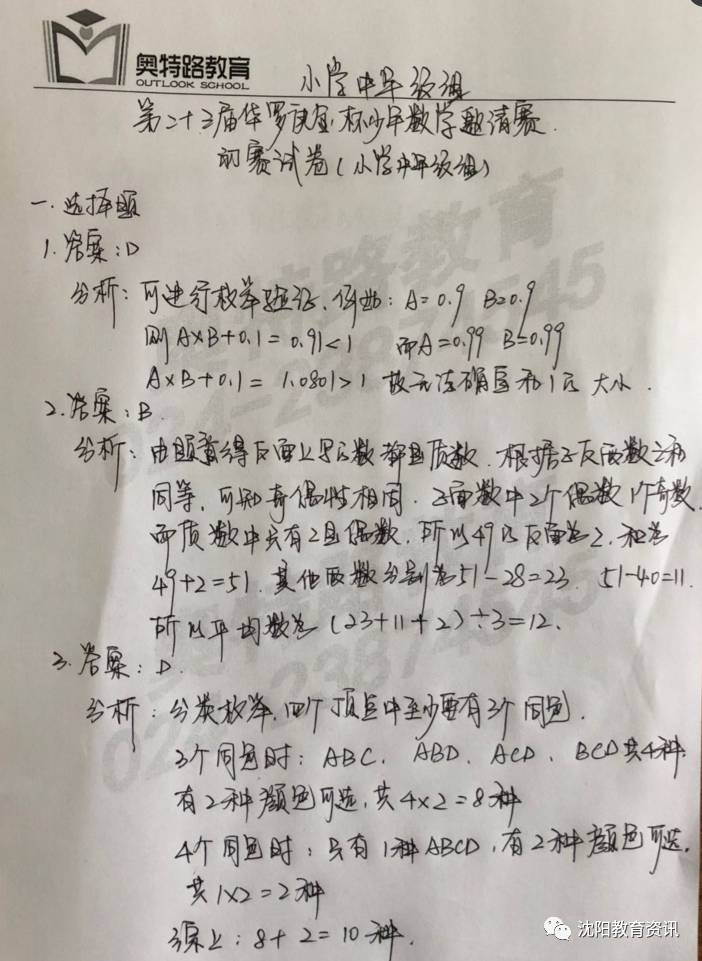 奥特路教育
OUTLOOK SCHOOL
小学中年级组
第二十三届华罗庚金杯少年数学邀请赛
初赛试卷(小学中年级组)
一.选择题
1.答案:D
分析:可进行枚举验证.例如:A=0.9 B=0.9
则A×B+0.1=0.91<1 而A=0.99 B=0.99
A×B+0.1=1.0801>1 故无法确定和1的大小.
2.答案:B.
分析:由题意得反面上写的数都是质数.根据正反两数之和
同等,可知奇偶性相同.正面数中2个偶数1个奇数.
而质数中只有2是偶数,所以49的反面为2.和为
49+2=51.其他两数分别为51-28=23. 51-40=11.
所以平均数为(23+11+2)÷3=12.
3.答案:D.
分析:分类枚举,四个顶点中至少要有3个同色.
3个同色时:ABC、ABD、ACD、BCD共4种.
有2种颜色可选,共4×2=8种
4个同色时:只有1种ABCD,有2种颜色可选.
共1×2=2种
综上:8+2=10种.
沈阳教育资讯